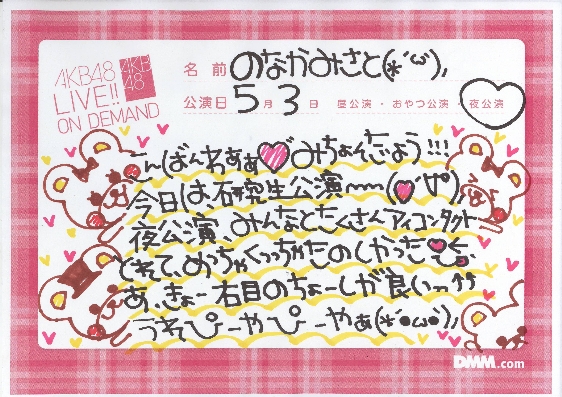 AKB48
LIVE!!
ON DEMAND
AKB
48
名前 のなかみさと(*´ω`)ﾉ
公演日 5月3日 昼公演・おやつ公演・夜公演
こんばんわぁぁ みちょんだよう!!!
今日は、研究生公演~~( ´∀`)ﾉ
夜公演、みんなとたくさんアイコンタクト
とれて、めっちゃくっちゃたのしかった
あ、きょー右目のちょーしが良いっ↑↑
うれぴーやぴーやぁ(*´●ω●`)ﾉ
DMM.com